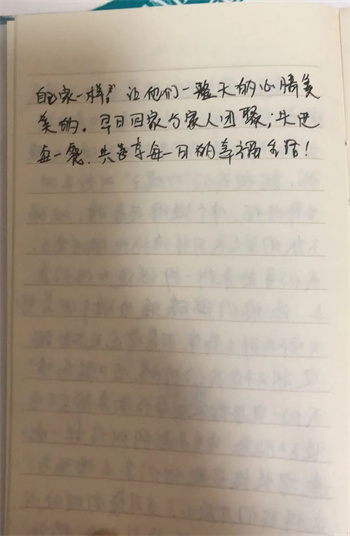 自己家一样!让他们一整天的心情美
美的。早日回家与家人团聚;共进
每一餐,共享每一日的幸福生活!